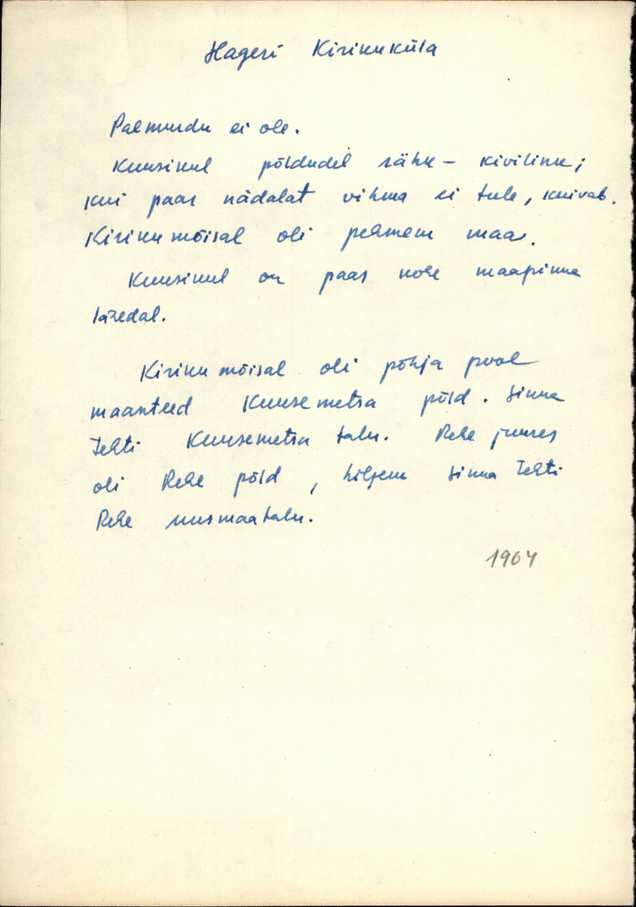 Hageri Kirikuküla
Paemurdu ei ole.
Kuusikul põldudel rähk – kivilik;
kui paar nädalat vihma ei tule, kuivab.
Kirikumõisal oli pehmem maa.
Kuusikul on paas kohe maapinna
lähedal.
Kirikumõisal oli põhja pool
maanteed Kuusemetsa põld. Sinna
tehti Kuusemetsa talu. Rehe juures
oli Rehe põld, hiljem sinna tehti
Rehe uusmaatalu.
1964